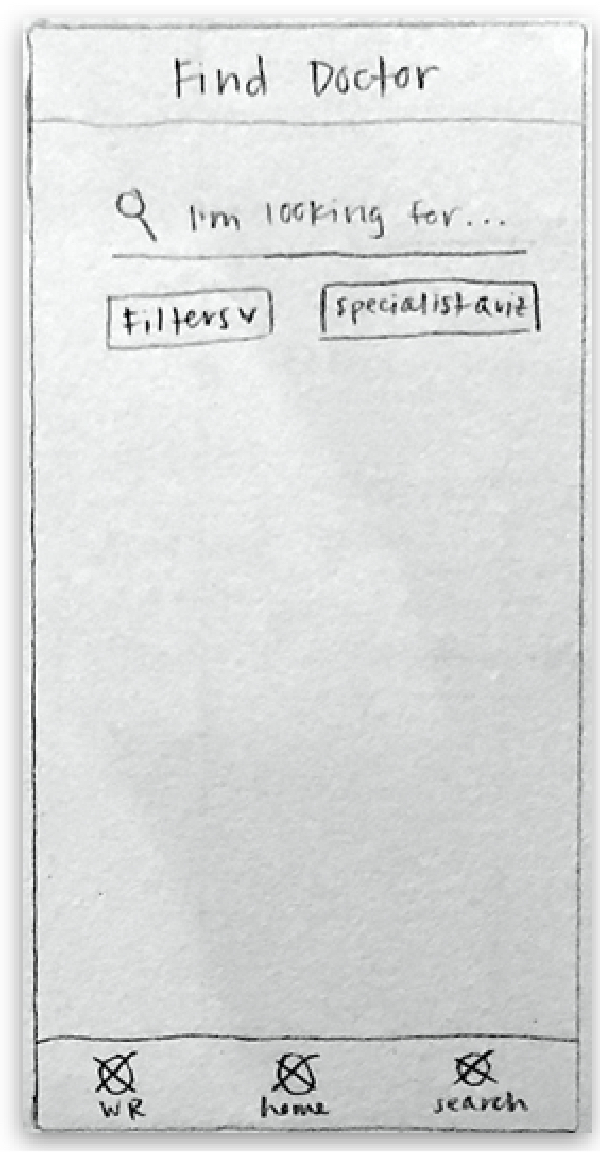 Find Doctor
I'm looking for...
Filters v
specialist quiz
WR
home
search